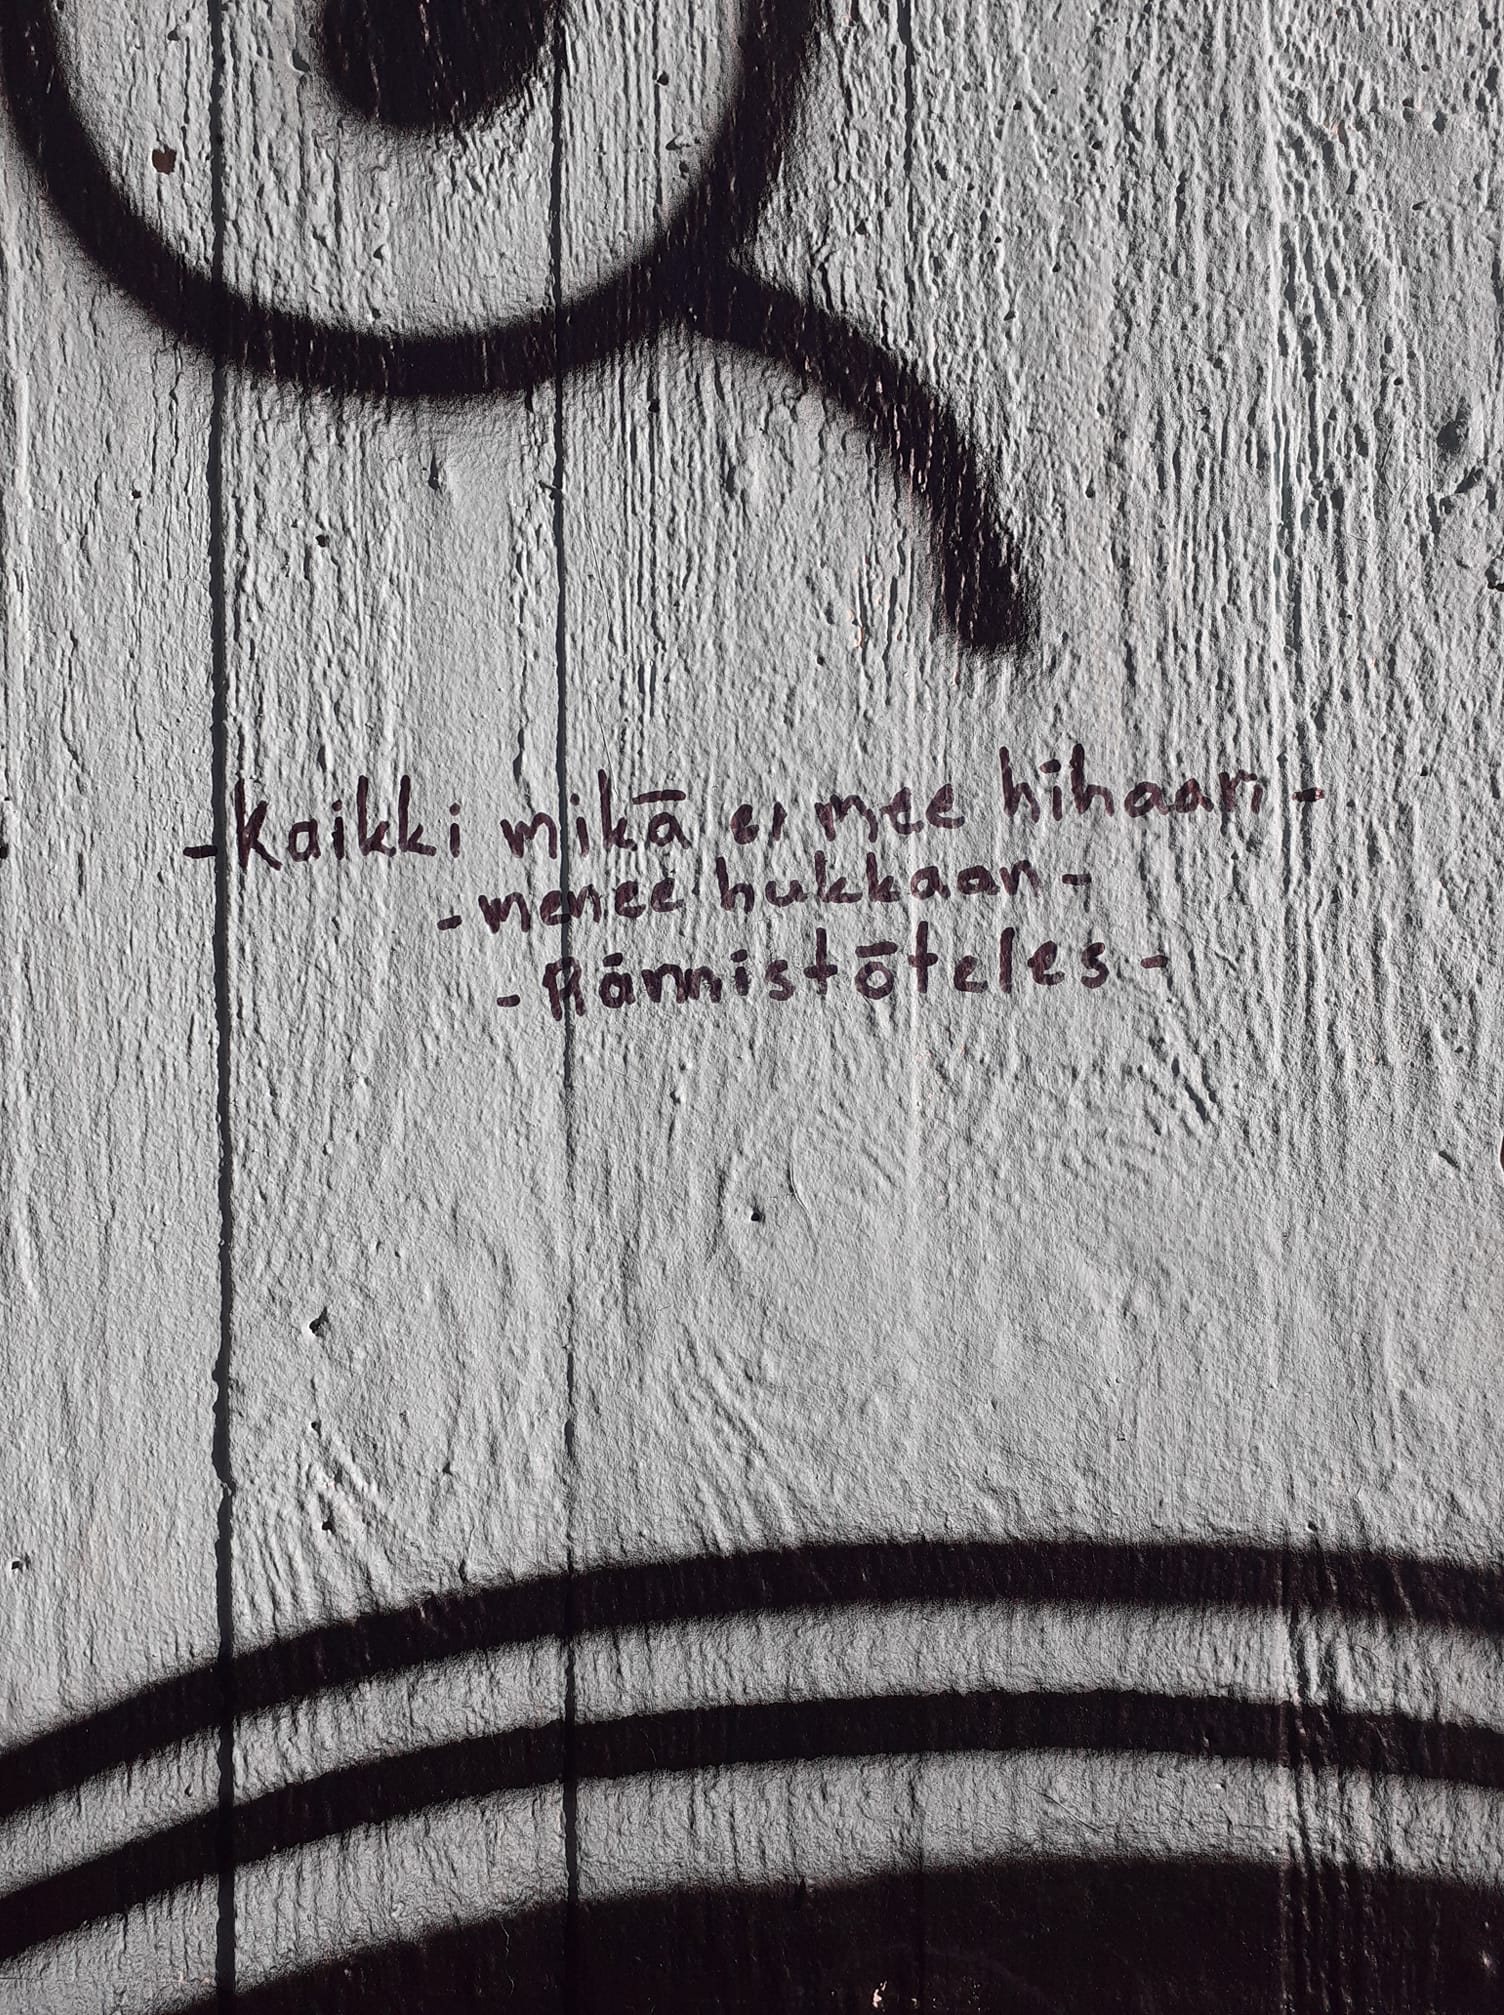 -Kaikki mikä ei mee hihaan-
-menee hukkaan-
-Rännistöteles-